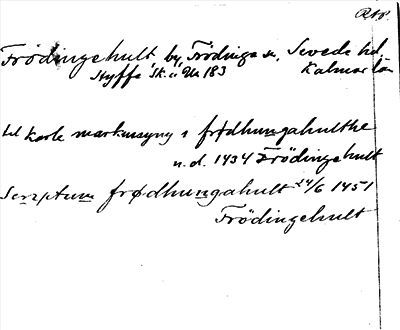 Rtr.
Frödingehult, by, Frödinge sn, Sevede hd,
Styffe Sk. u Un 183 Kalmar län
til karls markmayny i frødhungahulthe
n.d. 1434 Frödingehult
Scriptum frødhungahult 14/6 1451
Frödingehult